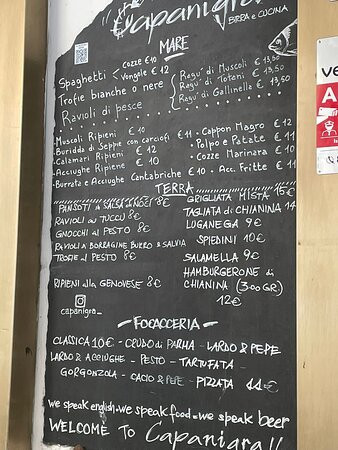 Capanigra
BIRRA e CUCINA
MARE
Spaghetti
Cozze €10
Vongole €12
Trofie bianche o nere
Ravioli di pesce
Ragu' di Muscoli € 13,50
Ragu' di Totani € 13,50
Ragu' di Gallinella € 13,50
• Muscoli Ripieni € 10
• Buridda di Seppie con carciofi € 11
• Calamari Ripieni € 12
• Acciughe Ripiene € 10
• Burrata e Acciughe Cantabriche € 10
• Cappon Magro € 12
• Polpo e Patate € 11
• Cozze Marinara € 10
• Acc. Fritte € 11
TERRA
PANSOTI in SALSA di NOCI 8€
RAVIOLI au TUCCU 8€
GNOCCHI al PESTO 8€
RAVIOLI a BORRAGINE BURRO & SALVIA
TROFIE al PESTO 8€
RIPIENI alla GENOVESE 8€
GRIGLIATA MISTA 15€
TAGLIATA di CHIANINA 14
LUGANEGA 9€
SPIEDINI 10€
SALAMELLA 9€
HAMBURGERONE di
CHIANINA (300 GR)
12€
capanigra_
- FOCACCERIA -
CLASSICA 10€ - CRUDO di PARMA - LARDO & PEPE
LARDO & ACCIUGHE - PESTO - TARTUFATA -
GORGONZOLA - CACIO & PEPE - PIZZATA 11€
we speak english • we speak food • we speak beer
WELCOME TO Capanigra!!